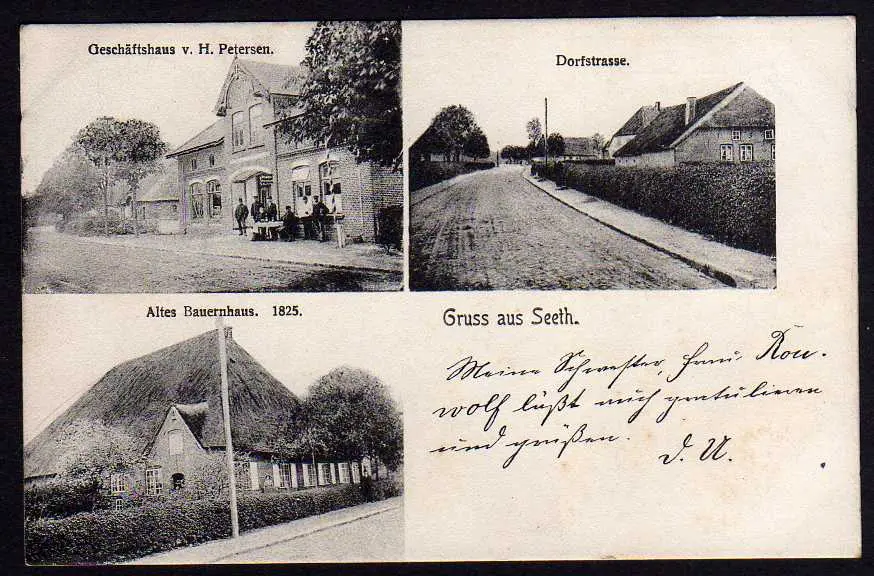 Geschäftshaus v. H. Petersen.
Dorfstrasse.
Altes Bauernhaus. 1825.
Gruss aus Seeth.
Meine Schwester, Frau
wolf läßt auch gratulieren
und grüßen.
d. U.